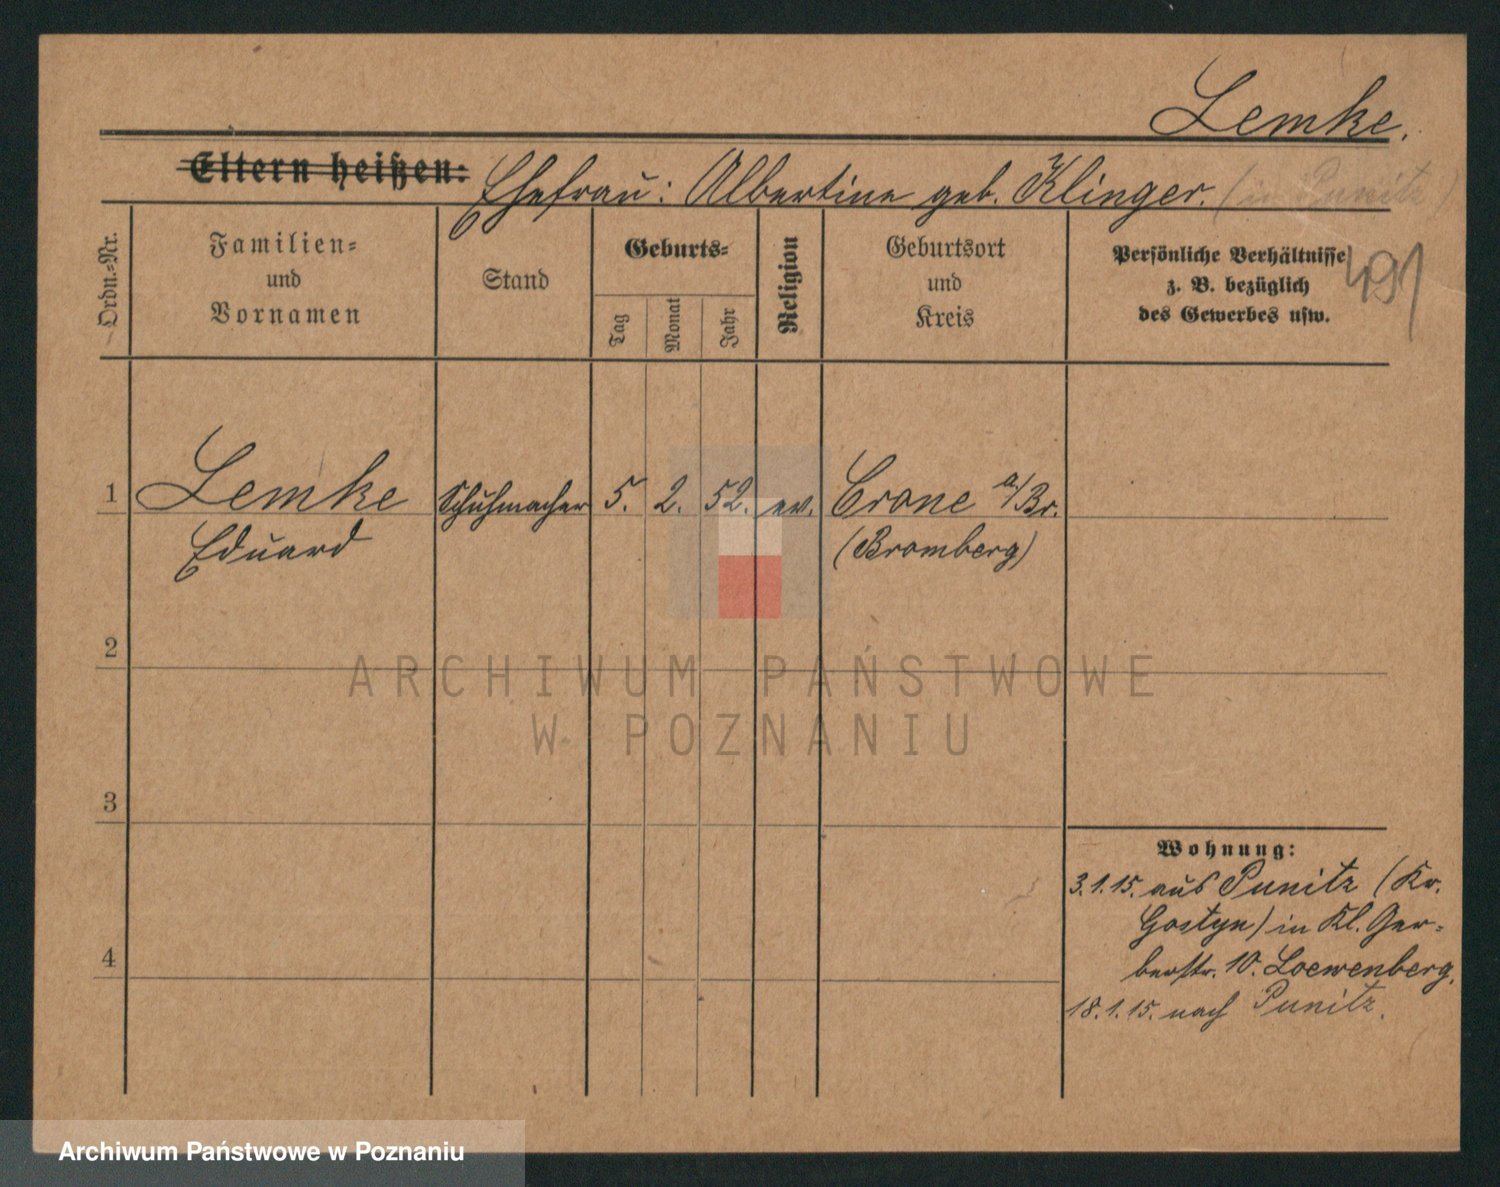 Lemke.
Eltern heißen: Ehefrau: Albertine geb. Klinger. (in Punitz)
Ordn.-Nr.
Familien-
und
Vornamen
Stand
Geburts-
Tag
Monat
Jahr
Religion
Geburtsort
und
Kreis
Persönliche Verhältnisse
z. B. bezüglich
des Gewerbes usw.
491
1 Lemke Schuhmacher 5. 2. 52. ev. Crone a/Br.
Eduard (Bromberg)
2
ARCHIWUM PAŃSTWOWE
W POZNANIU
3
Wohnung:
3.1.15. aus Punitz (Kr.
Gostyn) in Kl. Ger-
berstr. 10. Loewenberg.
4
18.1.15. nach Punitz.
Archiwum Państwowe w Poznaniu